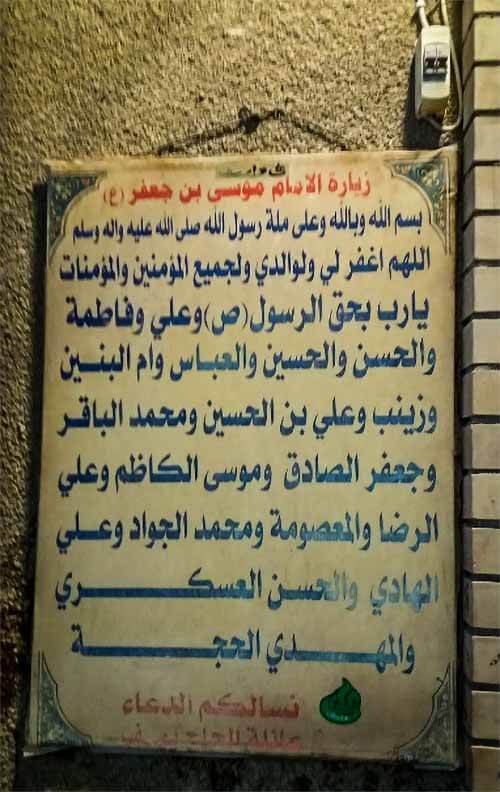 زيارة الامام موسى بن جعفر (ع)
بسم الله وبالله وعلى ملة رسول الله صلى الله عليه واله وسلم
اللهم اغفر لي ولوالدي ولجميع المؤمنين والمؤمنات
يارب بحق الرسول (ص) وعلي وفاطمة
والحسن والحسين والعباس وام البنين
وزينب وعلي بن الحسين ومحمد الباقر
وجعفر الصادق وموسى الكاظم وعلي
الرضا والمعصومة ومحمد الجواد وعلي
الهادي والحسن العسكري
والمهدي الحجة
نسالكم الدعاء
عائلة الحاج